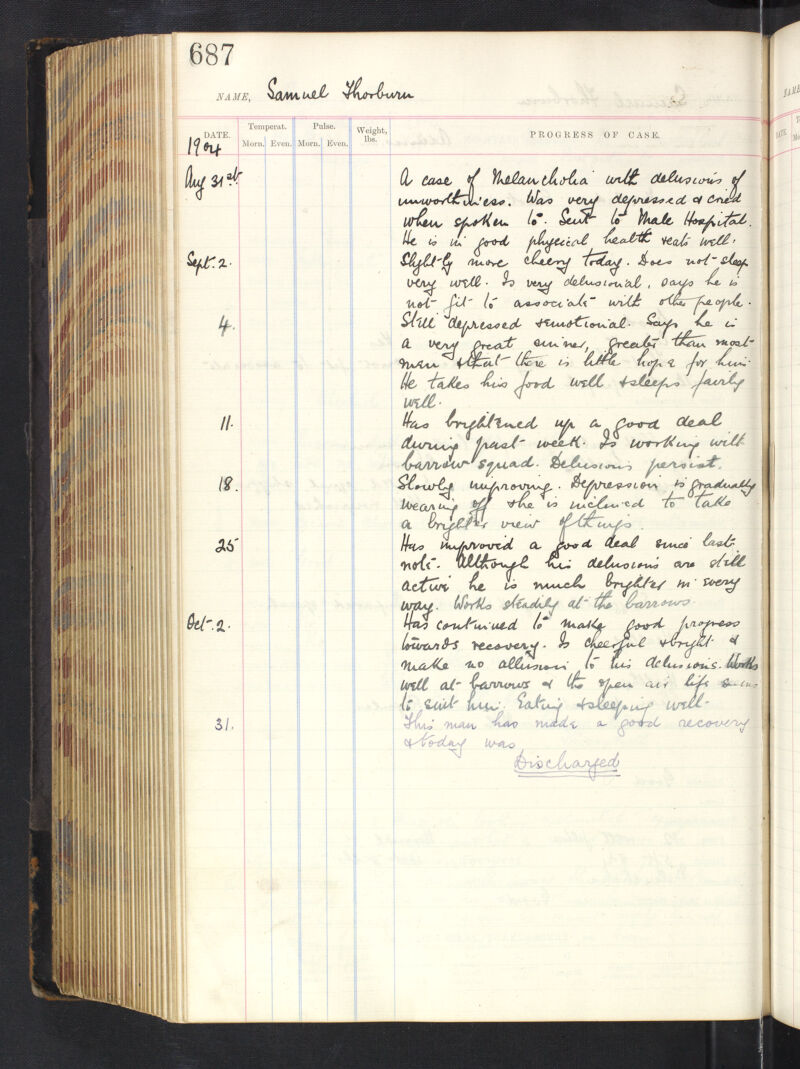 687
NAME, Samuel Thorburn
DATE. Temperat. Pulse. Weight, lbs. PROGRESS OF CASE.
Morn. Even. Morn. Even.
1904
Aug 31st. A case of Melancholia with delusions of
unworthiness. Was very depressed & cried
when spoken to. Sent to Male Hospital.
He is in good physical health & eats well.
Sept. 2. Slightly more cheery today. Does not sleep
very well. Is very delusional, says he is
not fit to associate with other people.
4. Still depressed & emotional. Says he is
a very great sinner, greater than most
men & that there is little hope for him.
He takes his food well & sleeps fairly
well.
11. Has brightened up a good deal
during past week. Is working with
barrow squad. Delusions persist.
18. Slowly improving. Depression is gradually
wearing off & he is inclined to take
a brighter view of things.
25 Has improved a good deal since last
note. Although his delusions are still
active he is much brighter in every
way. Works steadily at the barrows.
Oct. 2. Has continued to make good progress
towards recovery. Is cheerful & bright &
make no allusion to his delusions. Works
well at barrows & the open air life seems
to suit him. Eating & sleeping well.
31. This man has made a good recovery
& today was
Discharged